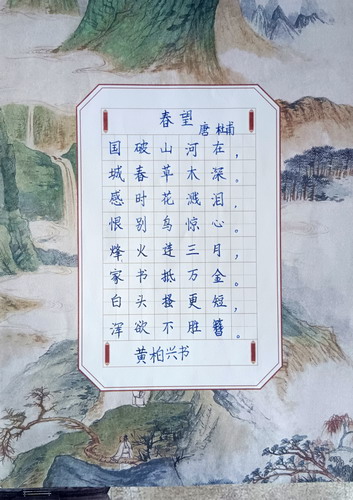 春望
唐 杜甫
国破山河在，
城春草木深。
感时花溅泪，
恨别鸟惊心。
烽火连三月，
家书抵万金。
白头搔更短，
浑欲不胜簪。
黄柏兴书